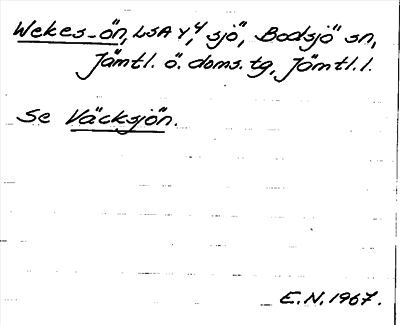 Wekes-ön, LSA Y4, sjö, Bodsjö sn,
Jämtl. ö. doms. tg, Jämtl. l.
Se Väcksjön.
E.N. 1967.